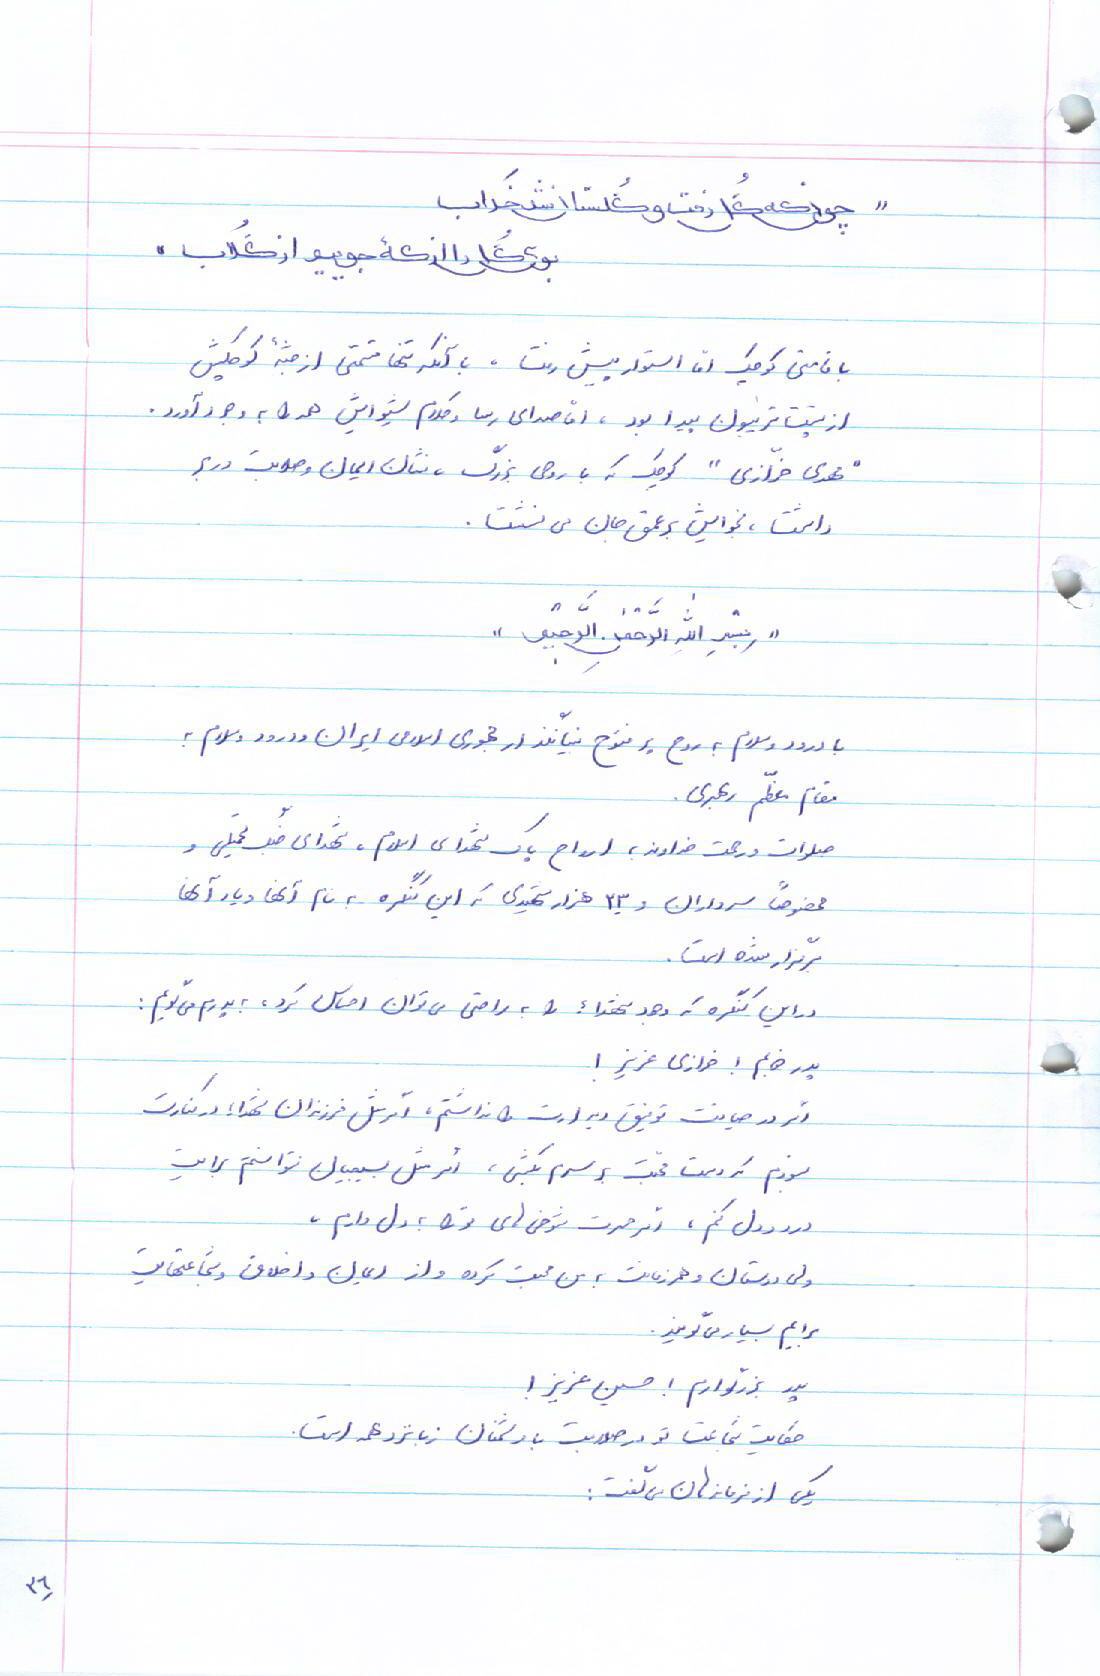 " چونکه گُل رفت و گُلستان شد خَراب
بوی گُل را از که جوییم از گُلاب "
با قامتی کوچک امّا استوار پیش رفت ، با آنکه تنها قسمتی از جثّهٔ کوچکش
از پشت تریبون پیدا بود ، امّا صدای رسا و کلام شیوایش همه را به وجد آورد .
" مهدی خرّازی " کوچک که با روحی بزرگ ، نشان ایمان و صلابت دربر
داشت ، نجوایش بر عمق جان می نشست .
" بِسْمِ اللّهِ الرَّحْمٰنِ الرَّحیمِ "
با درود و سلام به روح پر فتوح بنیانگذار جمهوری اسلامی ایران و درود و سلام به
مقام معظّم رهبری .
صلوات و رحمت خداوند به ارواح پاک شهدای اسلام ، شهدای جنگ تحمیلی و
مخصوصاً سرداران و ۲۳ هزار شهیدی که این کنگره به نام آنها و یاد آنها
برگزار شده است .
در این کنگره که وجود شهداء را به راحتی می توان احساس کرد ، به پدرم می گویم :
پدر خوبم ! خرازی عزیز !
اگر در حیاتت توفیق دیدارت را نداشتم ، اگر مثل فرزندان شهداء در کنارت
نبودم که دست محبّت بر سرم بکشی ، اگر مثل بسیجیان نتوانستم برایت
درد و دل کنم ، اگر حسرت شوخی های تو را به دل دارم ،
ولی دوستان و همرزمانت به من محبت کرده و از ایمان و اخلاق و شجاعتهایت
برایم بسیار می گویند .
پدر بزرگوارم ! حسین عزیز !
حکایت شجاعت تو در صلابت با دشمنان زبانزد همه است .
یکی از فرمانده هان می گفت :
۲۶